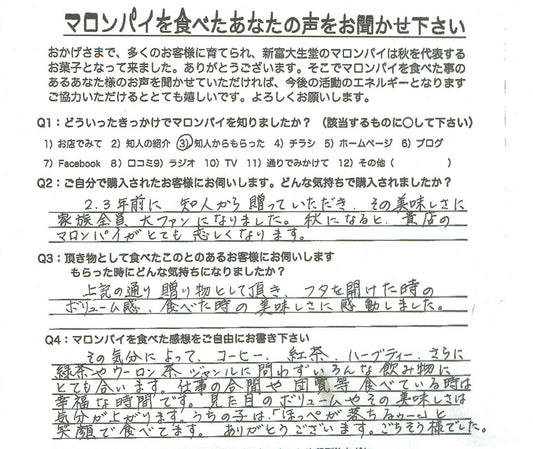 マロンパイを食べたあなたの声をお聞かせ下さい
おかげさまで、多くのお客様に育てられ、新富大生堂のマロンパイは秋を代表する
お菓子となって来ました。ありがとうございます。そこでマロンパイを食べた事の
あるあなた様のお声を聞かせていただければ、今後の活動のエネルギーとなります
ご協力いただけるととても嬉しいです。よろしくお願いします。
Q1：どういったきっかけでマロンパイを知りましたか？（該当するものに○して下さい）
1）お店でみて 2）知人の紹介 3）知人からもらった 4）チラシ 5）ホームページ 6）ブログ
7）Facebook 8）口コミ9）ラジオ 10）TV 11）通りでみかけて 12）その他（　　　）
Q2：ご自分で購入されたお客様にお伺いします。どんな気持ちで購入されましたか？
2.3年前に 知人から贈っていただき、その美味しさに
家族全員 大ファンになりました。秋になると、貴店の
マロンパイがとても恋しくなります。
Q3：頂き物として食べたことのとあるお客様にお伺いします
もらった時にどんな気持ちになりましたか？
上記の通り 贈り物として頂き、フタを開けた時の
ボリューム感、食べた時の美味しさに感動しました。
Q4：マロンパイを食べた感想をご自由にお書き下さい
その気分によって、コーヒー、紅茶、ハーブティー、さらに
緑茶やウーロン茶、ジャンルに問わずいろんな飲み物に
とても合います。仕事の合間や団らん等 食べている時は
幸福な時間です。見た目のボリュームやその美味しさは
気分が上がります。うちの子は、「ほっぺが落ちるぅー」と
笑顔で食べてます。ありがとうございます。ごちそう様でした。